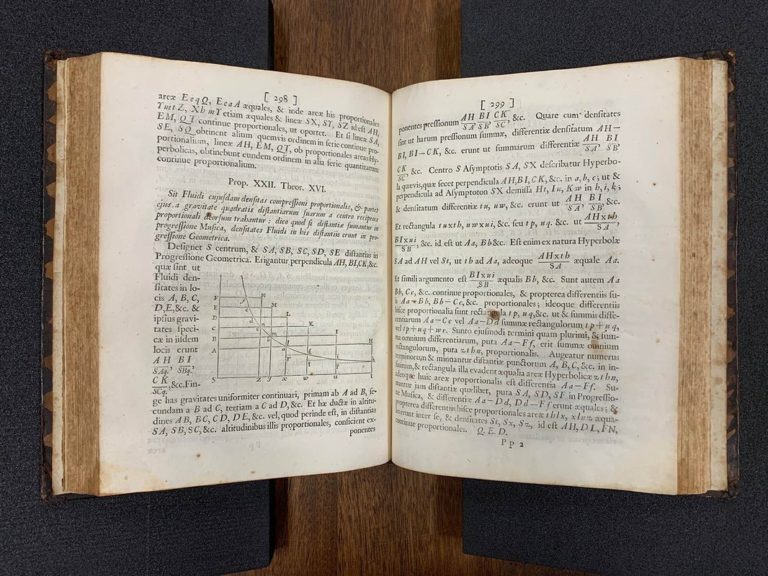 [ 298 ]
areæ EeqQ, EeaA æquales, & inde areæ his proportionales
YntZ, XhmY etiam æquales & lineæ SX, SY, SZ id est AH,
EM, QT continue proportionales, ut oportet. Et si lineæ SA,
SE, SQ obtinent alium quemvis ordinem in serie continue pro-
portionalium, lineæ AH, EM, QT, ob proportionales areas Hy-
perbolicas, obtinebunt eundem ordinem in alia serie quantitatum
continue proportionalium.
Prop. XXII. Theor. XVI.
Sit Fluidi cujusdam densitas compressioni proportionalis, & partes
ejus a gravitate quadratis distantiarum suarum a centro reciproce
proportionali deorsum trahantur: dico quod si distantiæ sumantur in
progressione Musica, densitates Fluidi in his distantiis erunt in pro-
gressione Geometrica.
Designet S centrum, & SA, SB, SC, SD, SE distantias in
Progressione Geometrica. Erigantur perpendicula AH, BI, CK, &c.
quæ sint ut
Fluidi den-
sitates in lo-
cis A, B, C,
D, E, &c. &
ipsius gravi-
tates speci-
ficæ in iisdem
locis erunt
AH BI
SAq. SBq.
CK
SCq. &c. Fin-
ge has gravitates uniformiter continuari, primam ab A ad B, se-
cundam a B ad C, tertiam a C ad D, &c. Et hæ ductæ in altitu-
dines AB, BC, CD, DE, &c. vel, quod perinde est, in distantias
SA, SB, SC, &c. altitudinibus illis proportionales, conficient ex-
ponentes
[ 299 ]
ponentes pressionum AH/SA, BI/SB, CK/SC, &c. Quare cum densitates
sint ut harum pressionum summæ, differentiæ densitatum AH−
BI, BI−CK, &c. erunt ut summarum differentiæ AH/SA, BI/SB,
CK/SC, &c. Centro S Asymptotis SA, SX describatur Hyperbo-
la quævis, quæ secet perpendicula AH, BI, CK, &c. in a, b, c; ut &
perpendicula ad Asymptoton SX demissa Ht, Iu, Kw in h, i, k;
& densitatum differentiæ tu, uw, &c. erunt ut AH/SA, BI/SB, &c.
Et rectangula tu×th, uw×ui, &c. seu tp, uq, &c. ut AH×th/SA,
BI×ui/SB, &c. id est ut Aa, Bb &c. Est enim ex natura Hyperbolæ
SA ad AH vel St, ut th ad Aa, adeoque AH×th/SA æquale Aa.
Et simili argumento est BI×ui/SB æqualis Bb, &c. Sunt autem Aa
Bb, Cc, &c. continue proportionales, & propterea differentiis su-
is Aa−Bb, Bb−Cc, &c. proportionales; ideoque differentiis
hisce proportionalia sunt rectangula tp, uq, &c. ut & summis diffe-
rentiarum Aa−Cc vel Aa−Dd summæ rectangulorum tp+uq,
vel tp+uq+wr. Sunto ejusmodi termini quam plurimi, & sum-
ma omnium differentiarum, puta Aa−Ff, erit summæ omnium
rectangulorum, puta zthn, proportionalis. Augeatur numerus
terminorum & minuantur distantiæ punctorum A, B, C, &c. in in-
finitum, & rectangula illa evadent æqualia areæ Hyperbolicæ zthn,
adeoque huic areæ proportionalis est differentia Aa−Ff. Su-
mantur jam distantiæ quælibet, puta SA, SD, SF in Progressio-
ne Musica, & differentiæ Aa−Dd, Dd−Ff erunt æquales; &
propterea differentiis hisce proportionales areæ thlx, xlnz æqua-
les erunt inter se, & densitates St, Sx, Sz, id est AH, DL, FN,
continue proportionales. Q. E. D.
Pp 2